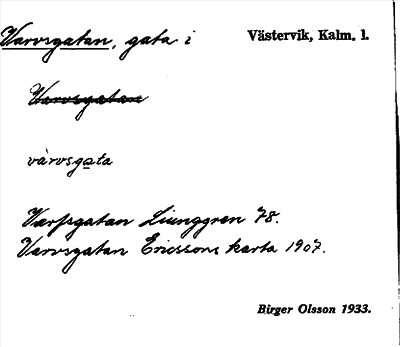 Varvsgatan, gata i Västervik, Kalm. l.
Varvsgatan
vàrvsgata
Varfsgatan Ljunggren 78.
Varvsgatan Ericssons karta 1907.
Birger Olsson 1933.